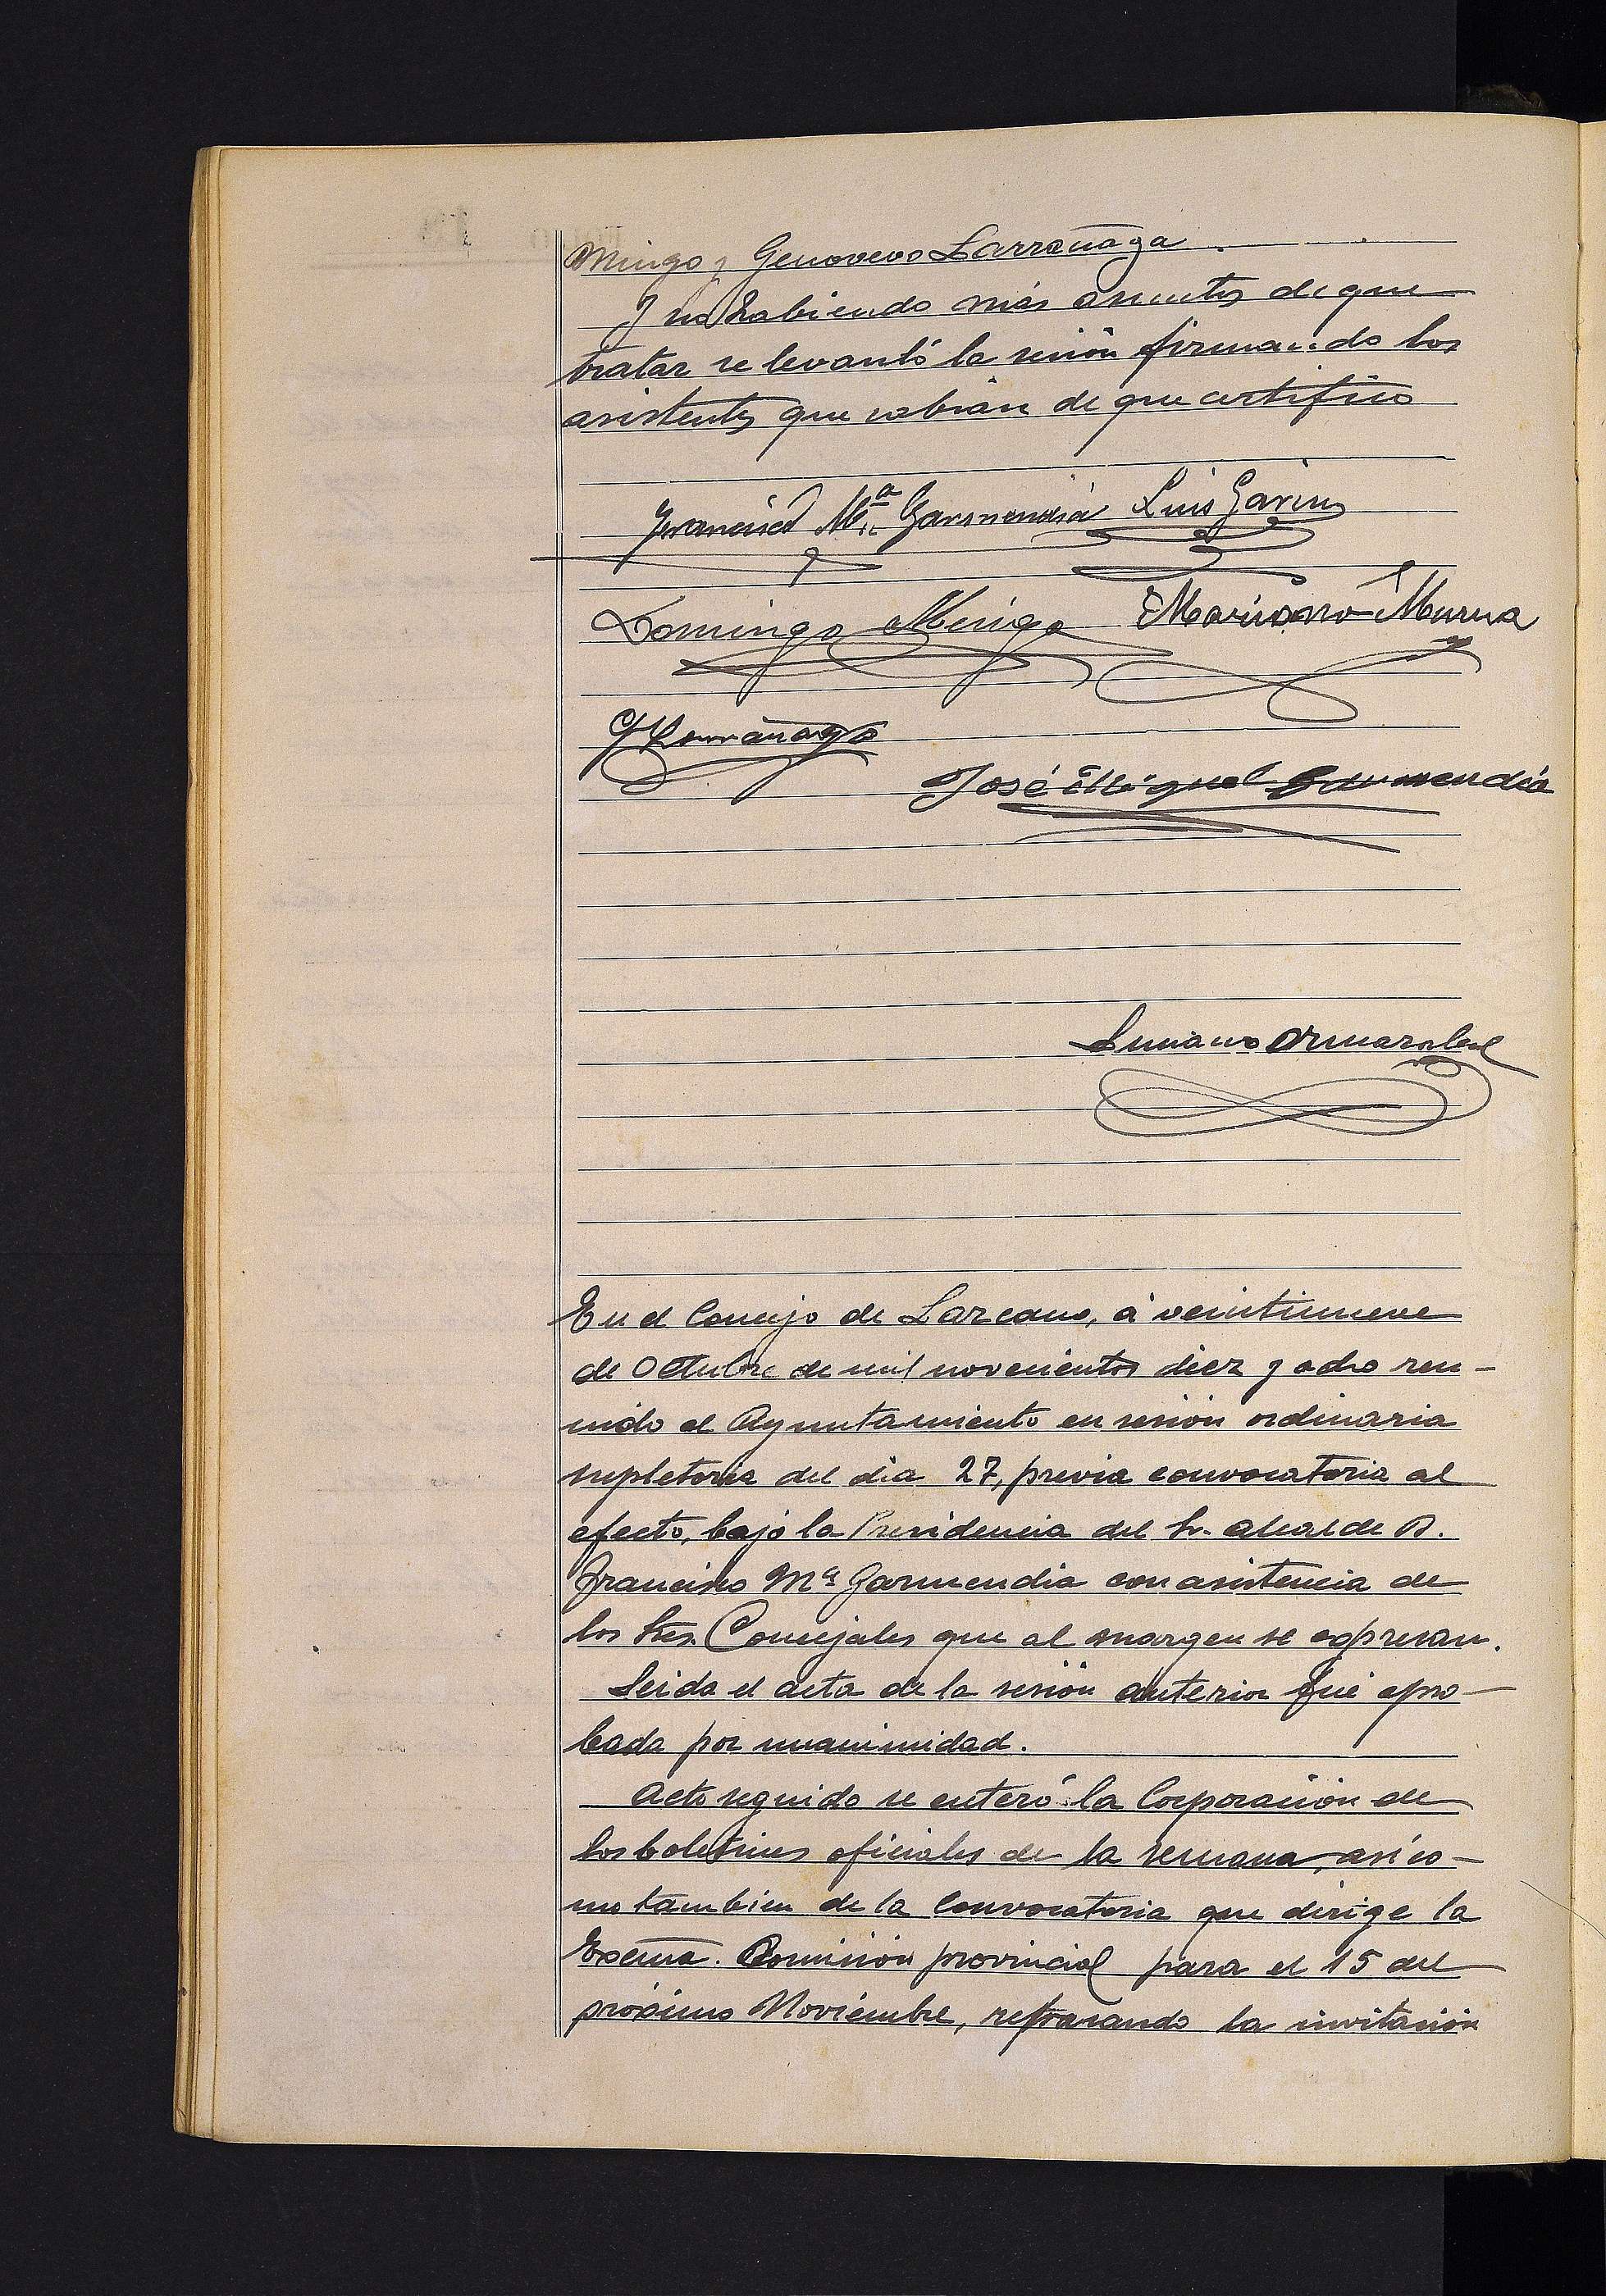 Mingo y Genovevo Larrañaga.
Y no habiendo más asuntos de que
tratar se levantó la sesión firmando los
asistentes que sabian de que certifico
Francisco Mª Garmendia Luis Garin
Domingo Mingo Mariano Murua
G Larrañaga
José Miguel Garmendia
Luciano
En el Concejo de Lazcano, á veintinueve
de Octubre de mil novecientos diez y ocho reu-
nido el Ayuntamiento en sesión ordinaria
supletoria del dia 27, previa convocatoria al
efecto, bajo la Presidencia del Sr. alcalde D.
Francisco Mª Garmendia con asistencia de
los Sres. Concejales que al margen se expresan.
Leida el acta de la sesión anterior fué apro-
bada por unanimidad.
Acto seguido se enteró la Corporación de
los boletines oficiales de la semana, asi co-
mo tambien de la convocatoria que dirige la
Excma. Comisión provincial para el 15 del
próximo Noviembre, la invitación